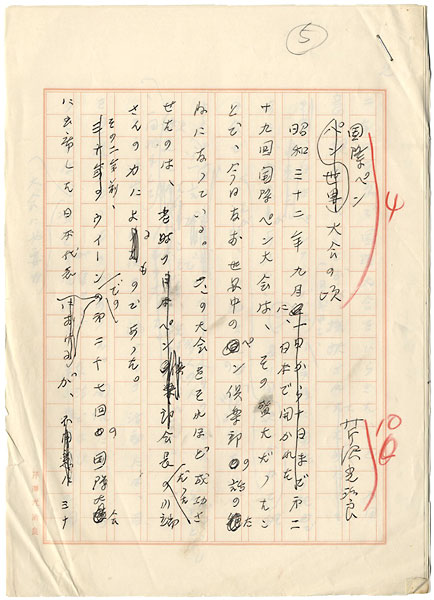 ⑤
国際ペン
ペン世界大会の頃
4
芹沢光治良
10
昭和三十二年九月に、日本で開かれた
十九回国際ペン大会は、その盛大だったこ
とで、今日なお世界中のペン倶楽部の話のた
ねになっている。この大会をそれほど成功さ
せたのは、当時の日本ペン倶楽部会長の川端
さんの力によるものであった。
その二年前、
ウイーンでの第二十七回の国際大会
に出席した日本代表が、三十